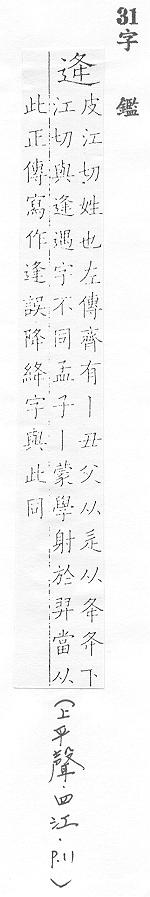 31字 鑑
逄
皮江切姓也左傳齊有丨丑父从辵从夅夅下
江切與逢遇字不同孟子丨蒙學射於羿當从
此正傳寫作逢誤降絳字與此同
(上平聲·四江·P.11)